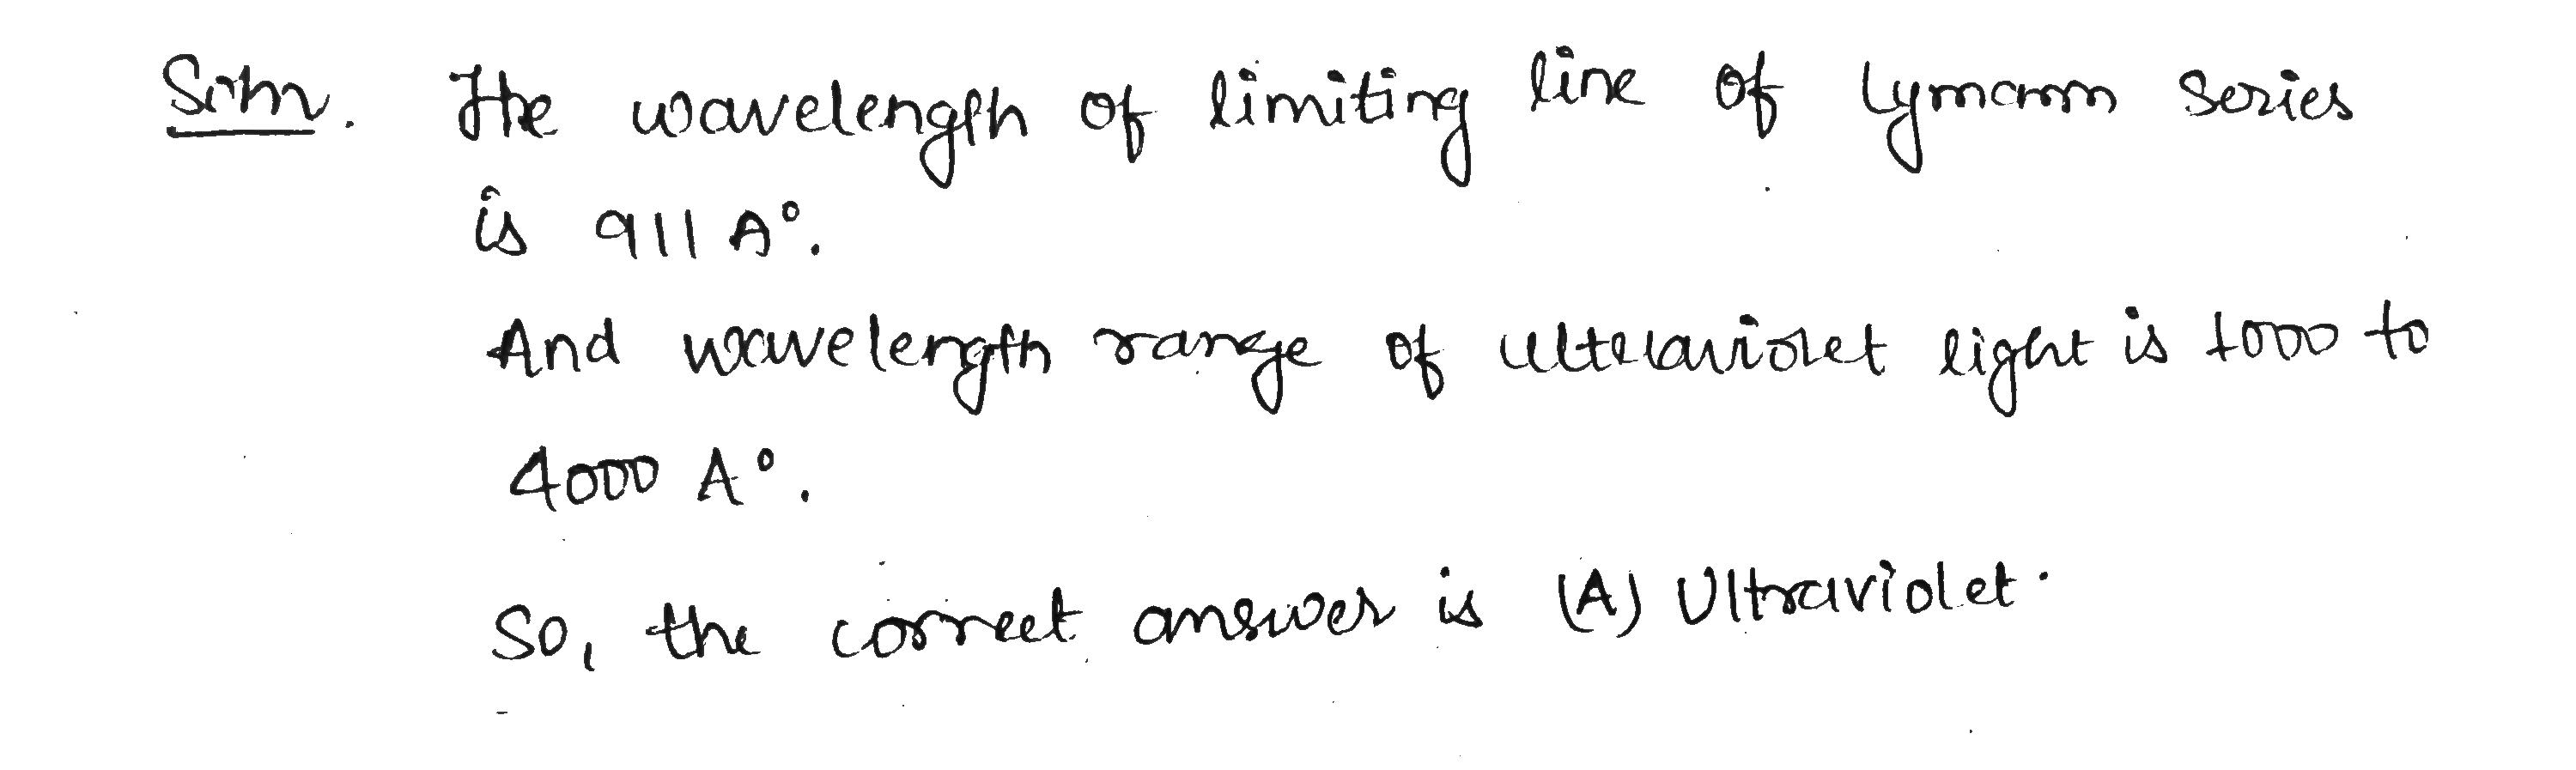 Soln. The wavelength of limiting line of Lyman series
is 911 A°.
And wavelength range of ultraviolet light is 1000 to
4000 A°.
So, the correct answer is (A) Ultraviolet.